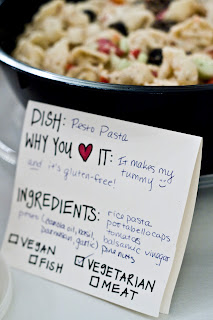 DISH: Pesto Pasta
WHY YOU ♥ IT: It makes my
tummy ☺
and it's gluten-free!
INGREDIENTS: rice pasta
portabello caps
tomatoes
pesto (canola oil, basil, balsamic vinegar
parmesan, garlic) pine nuts
☐ VEGAN ☑ VEGETARIAN
☐ FISH ☐ MEAT